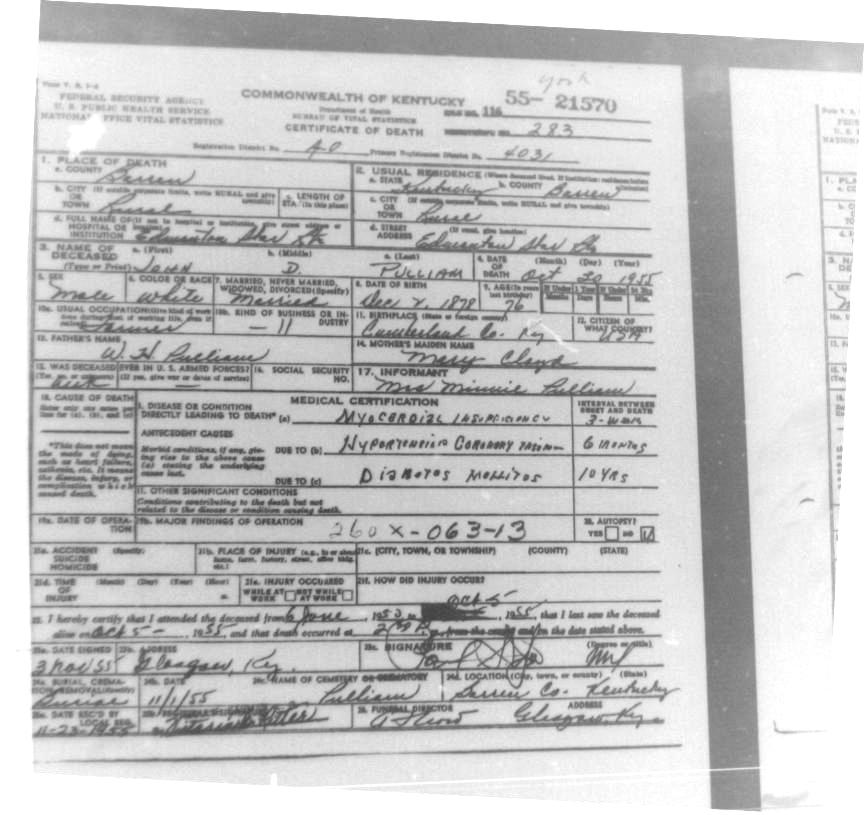 york
FEDERAL SECURITY AGENCY
U. S. PUBLIC HEALTH SERVICE
NATIONAL OFFICE VITAL STATISTICS
COMMONWEALTH OF KENTUCKY
Department of Health
BUREAU OF VITAL STATISTICS
CERTIFICATE OF DEATH
55- 21570
116
283
Registration District No. 40 Primary Registration District No. 4031
1. PLACE OF DEATH
a. COUNTY Barren
2. USUAL RESIDENCE
a. STATE Kentucky b. COUNTY Barren
b. CITY OR TOWN Rural
c. LENGTH OF STAY (in this place)
c. CITY OR TOWN Rural
d. FULL NAME OF HOSPITAL OR INSTITUTION Edmonton Star Rt
d. STREET ADDRESS Edmonton Star Rt
3. NAME OF DECEASED (Type or Print)
a. (First) JOHN b. (Middle) D. c. (Last) PULLIAM
4. DATE OF DEATH (Month) (Day) (Year) Oct 30 1955
5. SEX Male
6. COLOR OR RACE White
7. MARRIED, NEVER MARRIED, WIDOWED, DIVORCED (Specify) Married
8. DATE OF BIRTH Dec 2, 1878
9. AGE (In years last birthday) 76
10a. USUAL OCCUPATION Farmer
10b. KIND OF BUSINESS OR INDUSTRY — 11
11. BIRTHPLACE (State or foreign country) Cumberland Co. Ky
12. CITIZEN OF WHAT COUNTRY? USA
13. FATHER'S NAME W. H Pulliam
14. MOTHER'S MAIDEN NAME Mary Cloyd
15. WAS DECEASED EVER IN U. S. ARMED FORCES?
(If yes, give war or dates of service)
16. SOCIAL SECURITY NO.
17. INFORMANT Mrs Minnie Pulliam
18. CAUSE OF DEATH
Enter only one cause per line for (a), (b), and (c)
MEDICAL CERTIFICATION
INTERVAL BETWEEN ONSET AND DEATH
I. DISEASE OR CONDITION DIRECTLY LEADING TO DEATH* (a) MYOCARDIAL INSUFFICIENCY
*This does not mean the mode of dying, such as heart failure, asthenia, etc. It means the disease, injury, or complication which caused death.
ANTECEDENT CAUSES
Morbid conditions, if any, giving rise to the above cause (a) stating the underlying cause last.
DUE TO (b) 6 MONTHS
DUE TO (c) DIABETES MELLITUS 10 YRS
II. OTHER SIGNIFICANT CONDITIONS
Conditions contributing to the death but not related to the disease or condition causing death.
19a. DATE OF OPERATION
19b. MAJOR FINDINGS OF OPERATION
260X-063-13
20. AUTOPSY?
YES NO
21a. ACCIDENT SUICIDE HOMICIDE (Specify)
21b. PLACE OF INJURY
21c. (CITY, TOWN, OR TOWNSHIP) (COUNTY) (STATE)
21d. TIME OF INJURY (Month) (Day) (Year) (Hour)
21e. INJURY OCCURRED
WHILE AT WORK NOT WHILE AT WORK
21f. HOW DID INJURY OCCUR?
Oct 5
22. I hereby certify that I attended the deceased from 6 June, 1953 to , 1955, that I last saw the deceased
alive on Oct 5 -, 1955, and that death occurred at , from the causes and on the date stated above.
23a. DATE SIGNED 3 Nov 55
23b. ADDRESS Glasgow, Ky.
23c. SIGNATURE (Degree or title)
24a. BURIAL, CREMATION, REMOVAL (Specify) Burial
24b. DATE 11/1/55
24c. NAME OF CEMETERY OR CREMATORY Pulliam
24d. LOCATION (City, town, or county) (State) Barren Co. Kentucky
25a. DATE REC'D BY LOCAL REG. 11-23-1955
26. FUNERAL DIRECTOR
ADDRESS Glasgow, Ky.